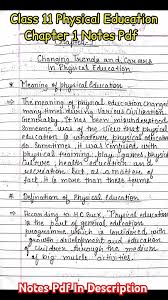 Class 11 Physical Education
Chapter 1 Notes Pdf
Changing Trends and Careers
in Physical Education
Meaning of Physical Education
The meaning of physical education changed
many times in various Civilisation
Generally, it has been misunderstood
Someone was of the view that physical
education is whatever physical education
do. Sometimes, it was confused with
physical training, play, games, physical
education. But, as a matter of
fact, it is more than these terms
Definition of Physical Education
According to H.C Buck, "Physical education
is the part of general education
programme, which is concerned with
growth, development and education
of children through the medium
of big muscle activities.
Notes Pdf In Description